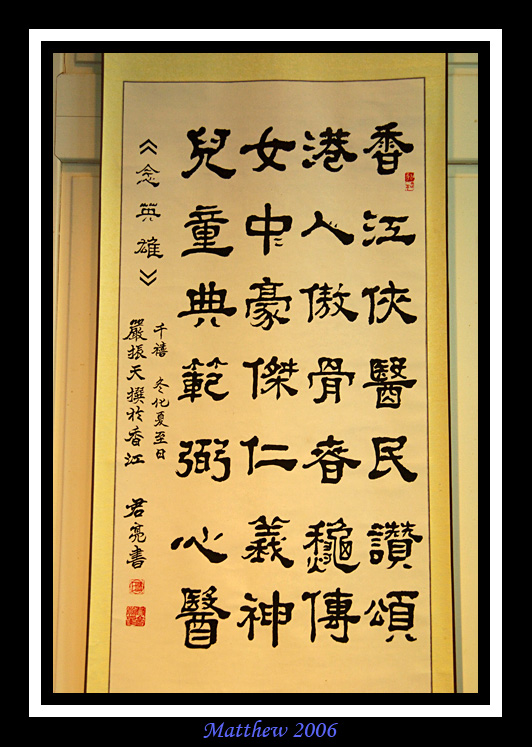 香江俠醫民讚頌
港人傲骨春龝傳
女中豪傑仁義神
兒童典範弼心醫
《念英雄》
千禧 冬化夏至日
嚴振天撰於香江 君亮書
Matthew 2006